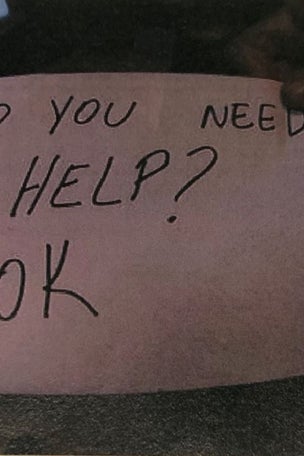 YOU NEED
HELP?
OK